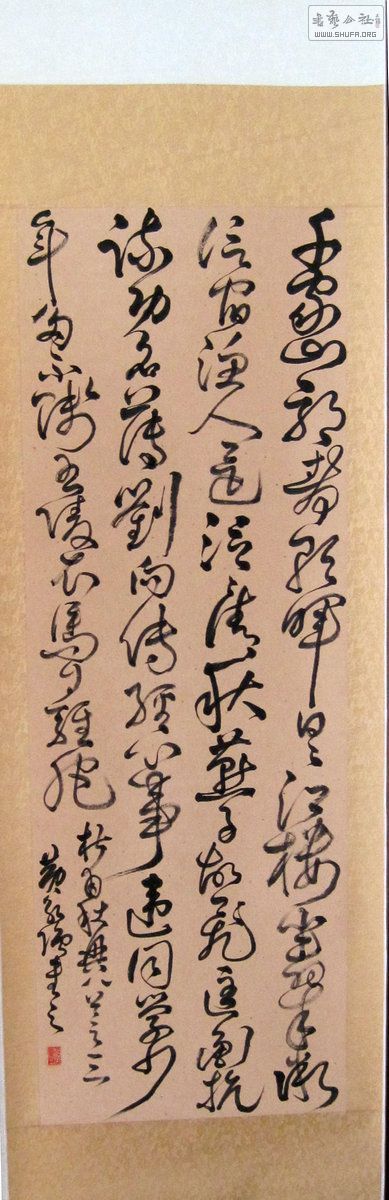 書藝公社
WWW.SHUFA.ORG
千家山郭静朝暉日日江樓坐翠微
信宿漁人還泛泛清秋燕子故飛飛匡衡抗
疏功名薄劉向傳經心事違同學少
年多不賤五陵衣馬自輕肥
杜甫秋興八首之三
黄書之